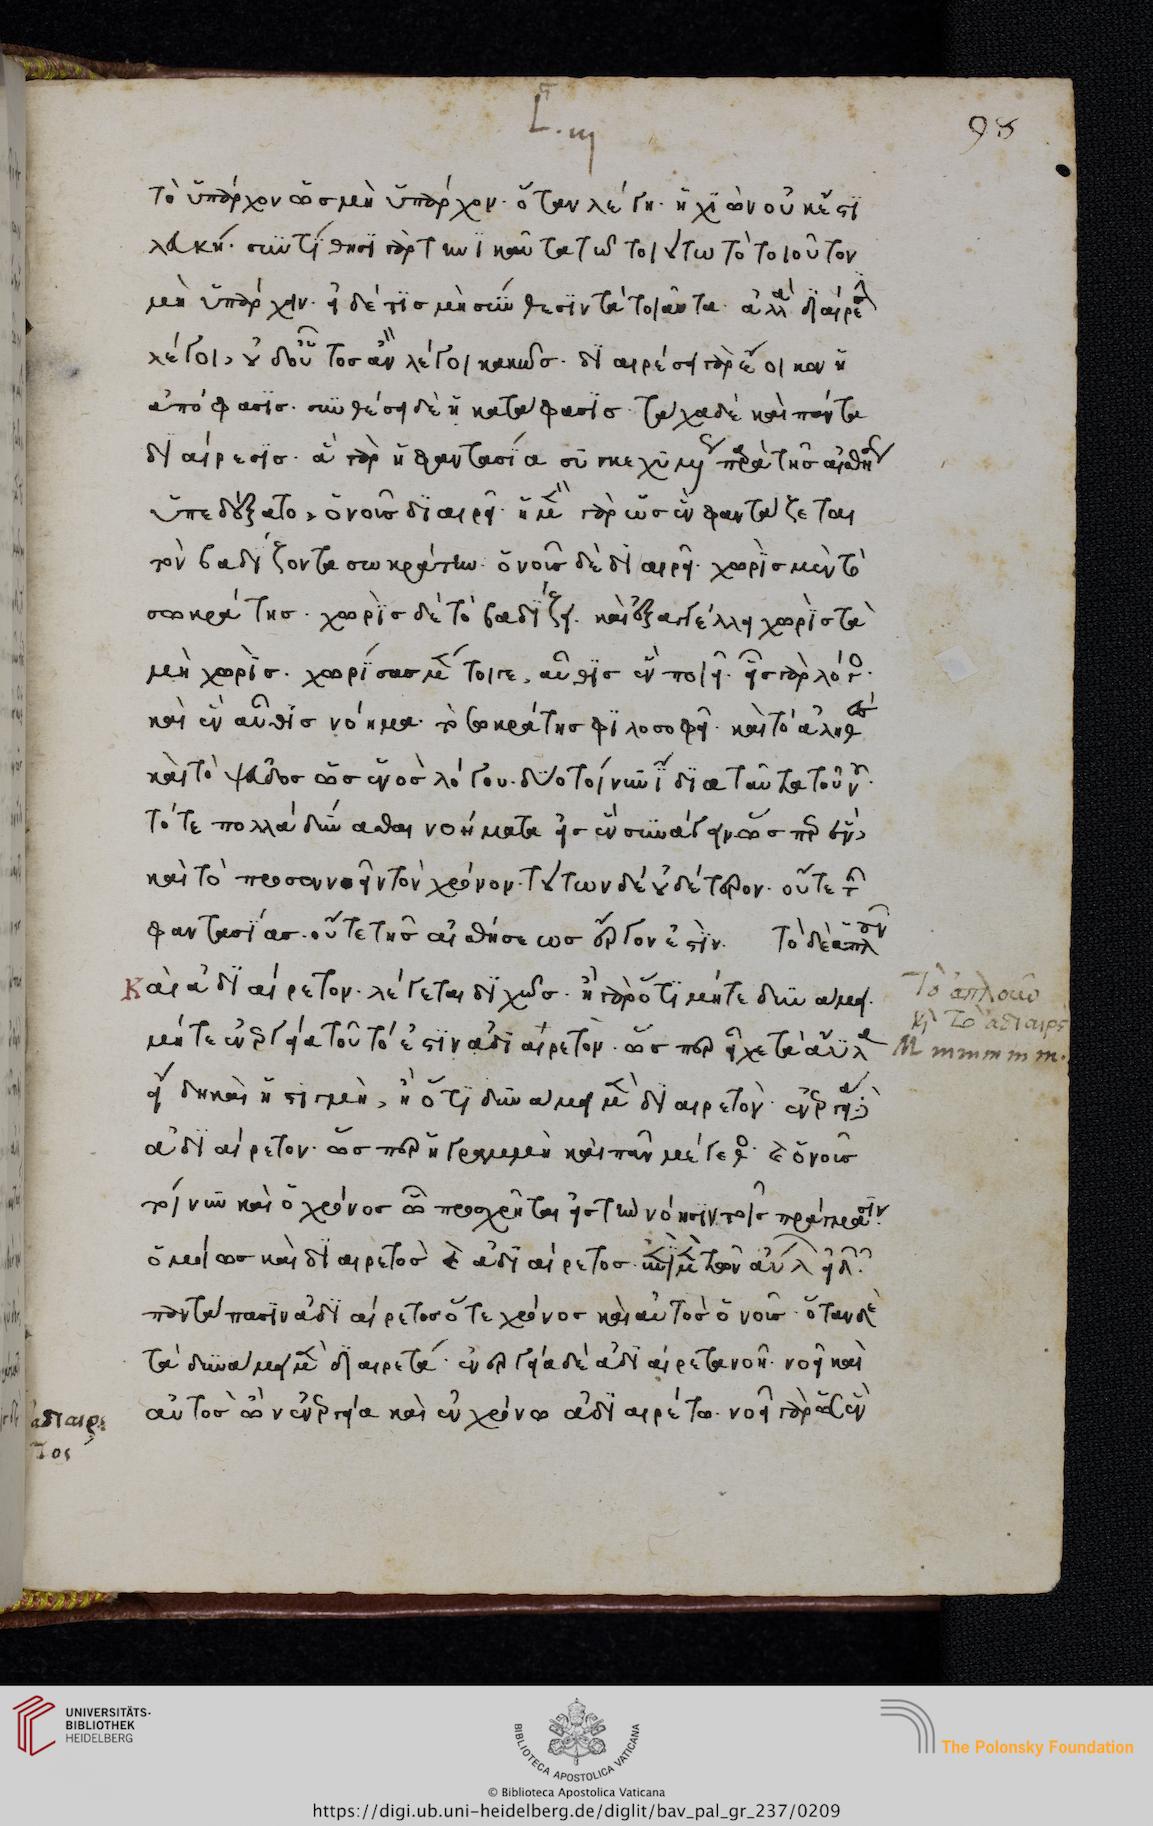 98
τὸ ὑπάρχον ὡς μὴ ὑπάρχον· ὅταν λέγη· ἡ χιὼν οὐκ ἔστι
λευκή· συντίθησι γὰρ τηνι καῦτα τῶ τοιούτω τὸ τοιοῦτον
μὴ ὑπάρχειν· εἰ δέ τις μὴ σύνθεσιν τὰ τοιαῦτα ἀλλὰ διαίρε
λέγοι, οὐδ οὗτος ἂν λέγοι κακῶς· διαιρέσει γὰρ ἔοικεν ἡ
ἀπόφασις· συνθέσει δὲ ἡ κατάφασις· τάχα δὲ καὶ πάντα
διαίρεσις· ἃ γὰρ ἡ φαντασία συγκεχυμ παρὰ τῆς αἰσθή
ὑπεδέξατο, ὁ νοῦς διαιρεῖ· ἡ μὲν γὰρ ὡς ἓν φαντάζεται
τὸν βαδίζοντα σωκράτην· ὁ νοῦς δὲ διαιρεῖ· χωρὶς μὲν τὸ
σωκράτης· χωρὶς δὲ τὸ βαδίζει· καὶ ἐξαγγέλλει χωρὶς τὰ
μὴ χωρίς· χωρίσας μέντοι γε, αὖθις ἓν ποιεῖ· εἷς γὰρ λόγ·
καὶ ἓν αὖθις νόημα· τὸ σωκράτης φιλοσοφεῖ· καὶ τὸ ἀληθὲς
καὶ τὸ ψεῦδος ὡς ἑνὸς λόγου· δύο τοίνυν ἴδια ταῦτα τοῦ ν·
τό τε πολλὰ δύνασθαι νοήματα εἰς ἓν συνάγειν ὥσπερ ἕν,
καὶ τὸ προσεννοεῖν τὸν χρόνον· τούτων δὲ οὐδέτερον· οὔτε τ
φαντασίας· οὔτε τῆς αἰσθήσεως ἔργον ἐστίν. Τὸ δὲ ἁπλοῦν
Καὶ ἀδιαίρετον· λέγεται διχῶς· ἢ γὰρ ὅτι μήτε δυνάμει·
μήτε ἐνεργεία τοῦτό ἐστιν ἀδιαίρετον· ὥσπερ εἶχε τὰ ἄυλα
εἴδη καὶ ἡ στιγμή, ἢ ὅτι δυνάμει μὲν διαιρετὸν· ἐνεργεία δὲ
ἀδιαίρετον· ὥσπερ ἡ γραμμὴ καὶ πᾶν μέγεθ· καὶ ὁ νοῦς
τοίνυν καὶ ὁ χρόνος ὧ προσχρῆται εἰς τὴν νόησιν τοῖς πράγμασιν·
ὁμοίως καὶ διαιρετὸς καὶ ἀδιαίρετος· τῶν ἀύλ
παντάπασιν ἀδιαίρετος ὅ τε χρόνος καὶ αὐτὸς ὁ νοῦς· ὅταν δὲ
τὰ δυνάμει μὲν διαιρετά· ἐνεργεία δὲ ἀδιαίρετα νοῆ· νοεῖ καὶ
αὐτὸς ὢν ἐνεργεία καὶ ἐν χρόνω ἀδιαιρέτω· νοεῖ γὰρ ὡς ἓν
Τὸ ἁπλοῦν
κὶ τὸ ἀδιαιρε
ἀδιαιρε
τος
UNIVERSITÄTS-
BIBLIOTHEK
HEIDELBERG
BIBLIOTECA APOSTOLICA VATICANA
The Polonsky Foundation
© Biblioteca Apostolica Vaticana
https://digi.ub.uni-heidelberg.de/diglit/bav_pal_gr_237/0209